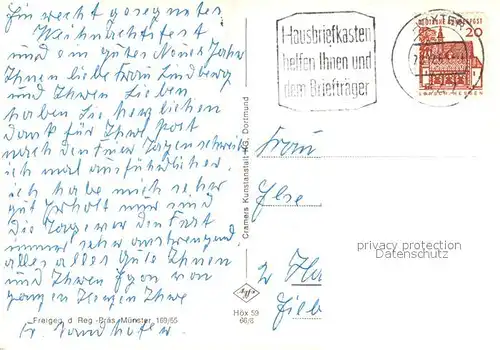 Ein recht gesegnetes
Weihnachtsfest
und ein gutes Neues Jahr
Ihnen liebe Frau Lindberg
und Ihren Lieben
haben Sie herzlichen
Dank für Ihre Post
nach den Feier Tagen schreibe
ich mal ausführlicher.
ich habe mich sehr
gut erholt nur sind
die Tage vor dem Fest
immer sehr anstrengend.
alles alles gute Ihnen
und Ihrem Egon von
ganzen Herzen Ihre
Fr.
Freigeg. d. Reg.-Präs. Münster 160/65
Cramers Kunstanstalt KG, Dortmund
Höx 59
66/8
Hausbriefkasten
helfen Ihnen und
dem Briefträger
DEUTSCHE BUNDESPOST
20
LORSCH/HESSEN
Frau
Else
2 Ha
privacy protection
Datenschutz